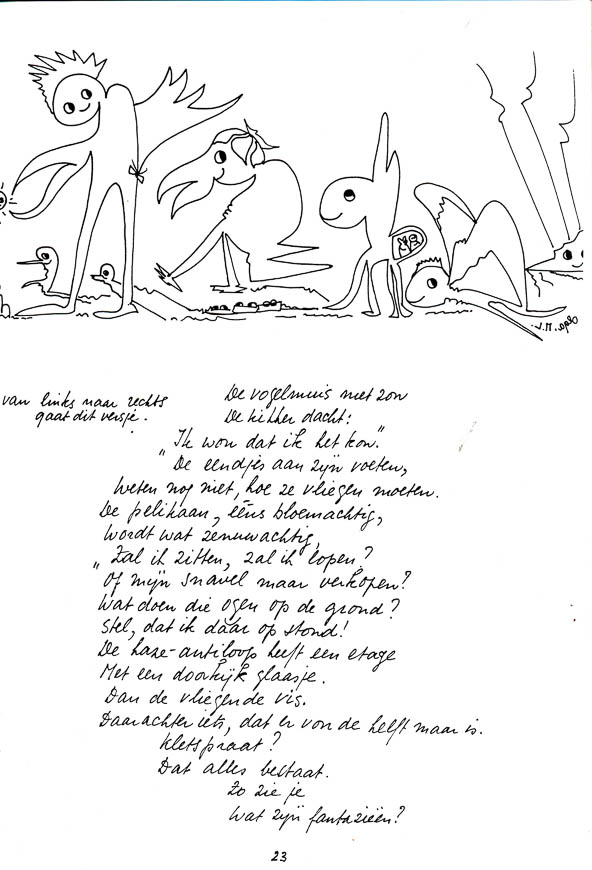 van links naar rechts
gaat dit versje.
De vogelmuis met zon
De kikker dacht:
"Ik wou dat ik het kon."
De eendjes aan zijn voeten,
Weten nog niet, hoe ze vliegen moeten.
De pelikaan, ééns bloemachtig,
Wordt wat zenuwachtig,
"Zal ik zitten, zal ik lopen?
Of mijn snavel maar verkopen?
Wat doen die ogen op de grond?
Stel, dat ik daar op stond!
De haze-antiloop heeft een etage
Met een doorkijk glaasje.
Dan de vliegende vis.
Daarachter iets, dat er von de helft maar is.
Kletspraat?
Dat alles bestaat.
Zo zie je
Wat zijn fantazieën?
23